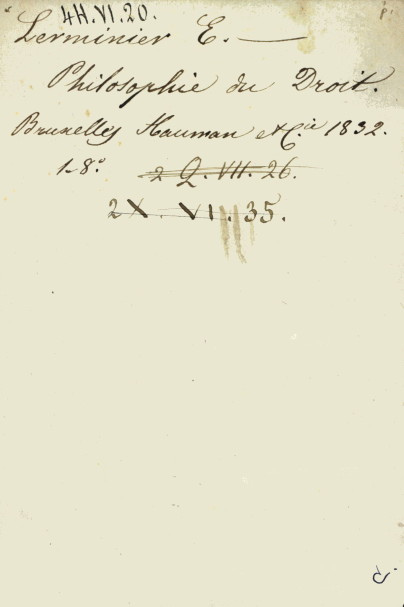 4H.VI.20.
Lerminier E. —
Philosophie du Droit.
Bruxelles Hauman et C.ie 1832.
1-8° 2 Q. VII. 26.
2X. VI. 35.